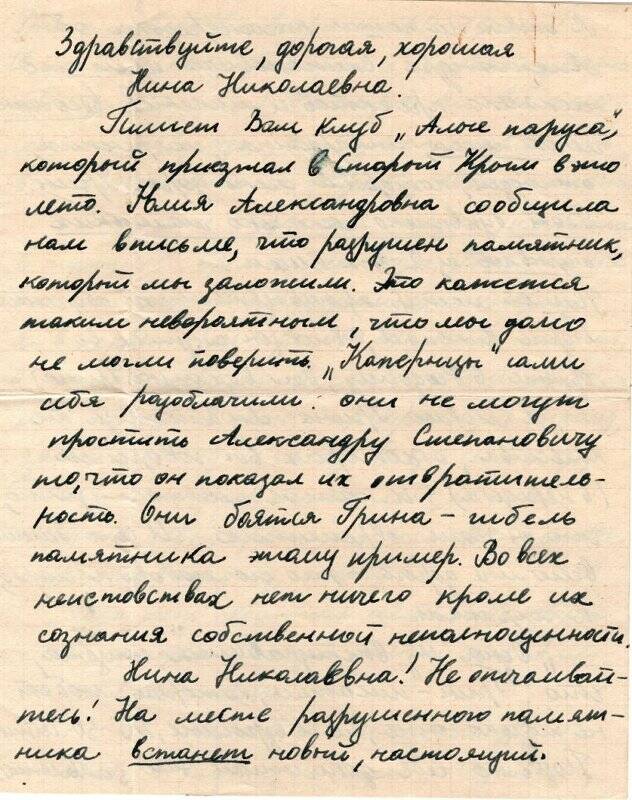 Здравствуйте, дорогая, хорошая
Нина Николаевна!
Пишет Вам клуб „Алые паруса“,
который приезжал в Старый Крым в это
лето. Юлия Александровна сообщила
нам в письме, что разрушен памятник,
который мы заложили. Это кажется
таким невероятным, что мы долго
не могли поверить. „Каперницы“ сами
себя разоблачили: они не могут
простить Александру Степановичу
то, что он показал их отвратитель-
ность. Они боятся Грина – гибель
памятника этому пример. Во всех
неистовствах нет ничего кроме их
сознания собственной неполноценности.
Нина Николаевна! Не отчаивай-
тесь! На месте разрушенного памят-
ника встанет новый, настоящий.